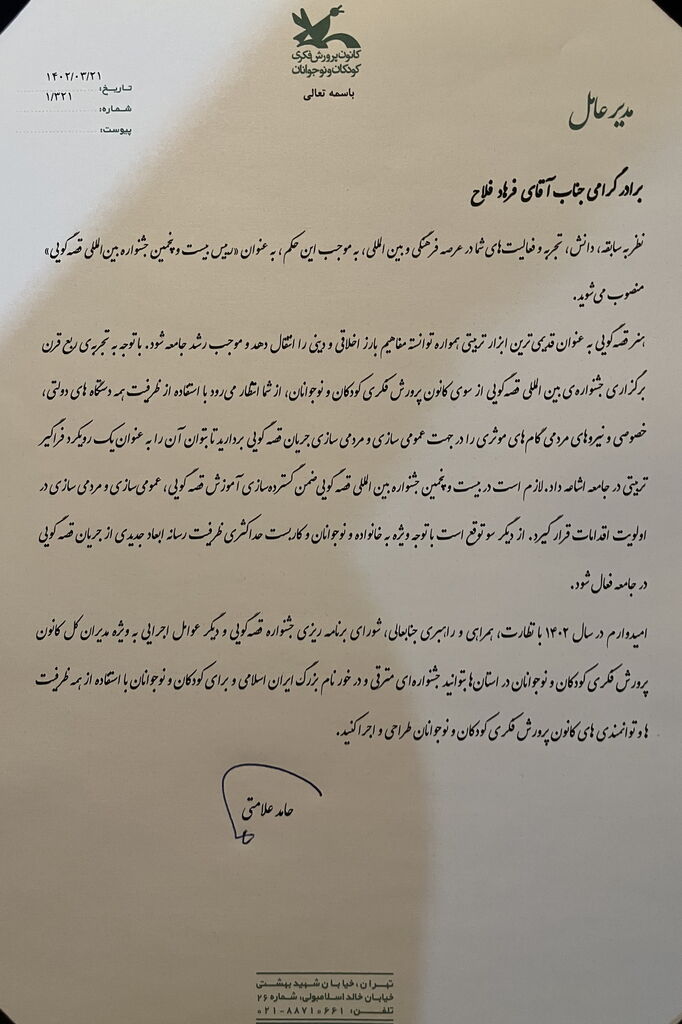 کانون پرورش فکری
کودکان و نوجوانان
باسمه تعالی
تاریخ: ۱۴۰۲/۰۳/۲۱
شماره: ۱/۳۲۱
پیوست:
مدیر عامل
برادر گرامی جناب آقای فرهاد فلاح
نظر به سابقه، دانش، تجربه و فعالیت‌های شما در عرصه فرهنگی و بین المللی، به موجب این حکم، به عنوان «رییس بیست و پنجمین جشنواره بین‌المللی قصه‌گویی»
منصوب می‌شوید.
هنر قصه‌گویی به عنوان قدیمی‌ترین ابزار تربیتی همواره توانسته مفاهیم بارز اخلاقی و دینی را انتقال دهد و موجب رشد جامعه شود. با توجه به تجربه‌ی ربع قرن
برگزاری جشنواره‌ی بین المللی قصه‌گویی از سوی کانون پرورش فکری کودکان و نوجوانان، از شما انتظار می‌رود با استفاده از ظرفیت همه دستگاه های دولتی،
خصوصی و نیروهای مردمی گام‌های موثری را در جهت عمومی سازی و مردمی سازی جریان قصه‌گویی بردارید تا بتوان آن را به عنوان یک رویکرد فراگیر
تربیتی در جامعه اشاعه داد. لازم است در بیست و پنجمین جشنواره بین المللی قصه‌گویی ضمن گسترده‌سازی آموزش قصه‌گویی، عمومی‌سازی و مردمی سازی در
اولویت اقدامات قرار گیرد. از دیگر سو توقع است با توجه ویژه به خانواده و نوجوانان و کاربست حداکثری ظرفیت رسانه ابعاد جدیدی از جریان قصه‌گویی
در جامعه فعال شود.
امیدوارم در سال ۱۴۰۲ با نظارت، همراهی و راهبری جنابعالی، شورای برنامه ریزی جشنواره قصه‌گویی و دیگر عوامل اجرایی به ویژه مدیران کل کانون
پرورش فکری کودکان و نوجوانان در استان‌ها بتوانید جشنواره‌ای مترقی و در خور نام بزرگ ایران اسلامی و برای کودکان و نوجوانان با استفاده از همه ظرفیت
ها و توانمندی های کانون پرورش فکری کودکان و نوجوانان طراحی و اجرا کنید.
حامد علامتی
تهران، خیابان شهید بهشتی
خیابان خالد اسلامبولی، شماره ۲۶
تلفن: ۰۲۱-۸۸۷۱۰۶۶۱